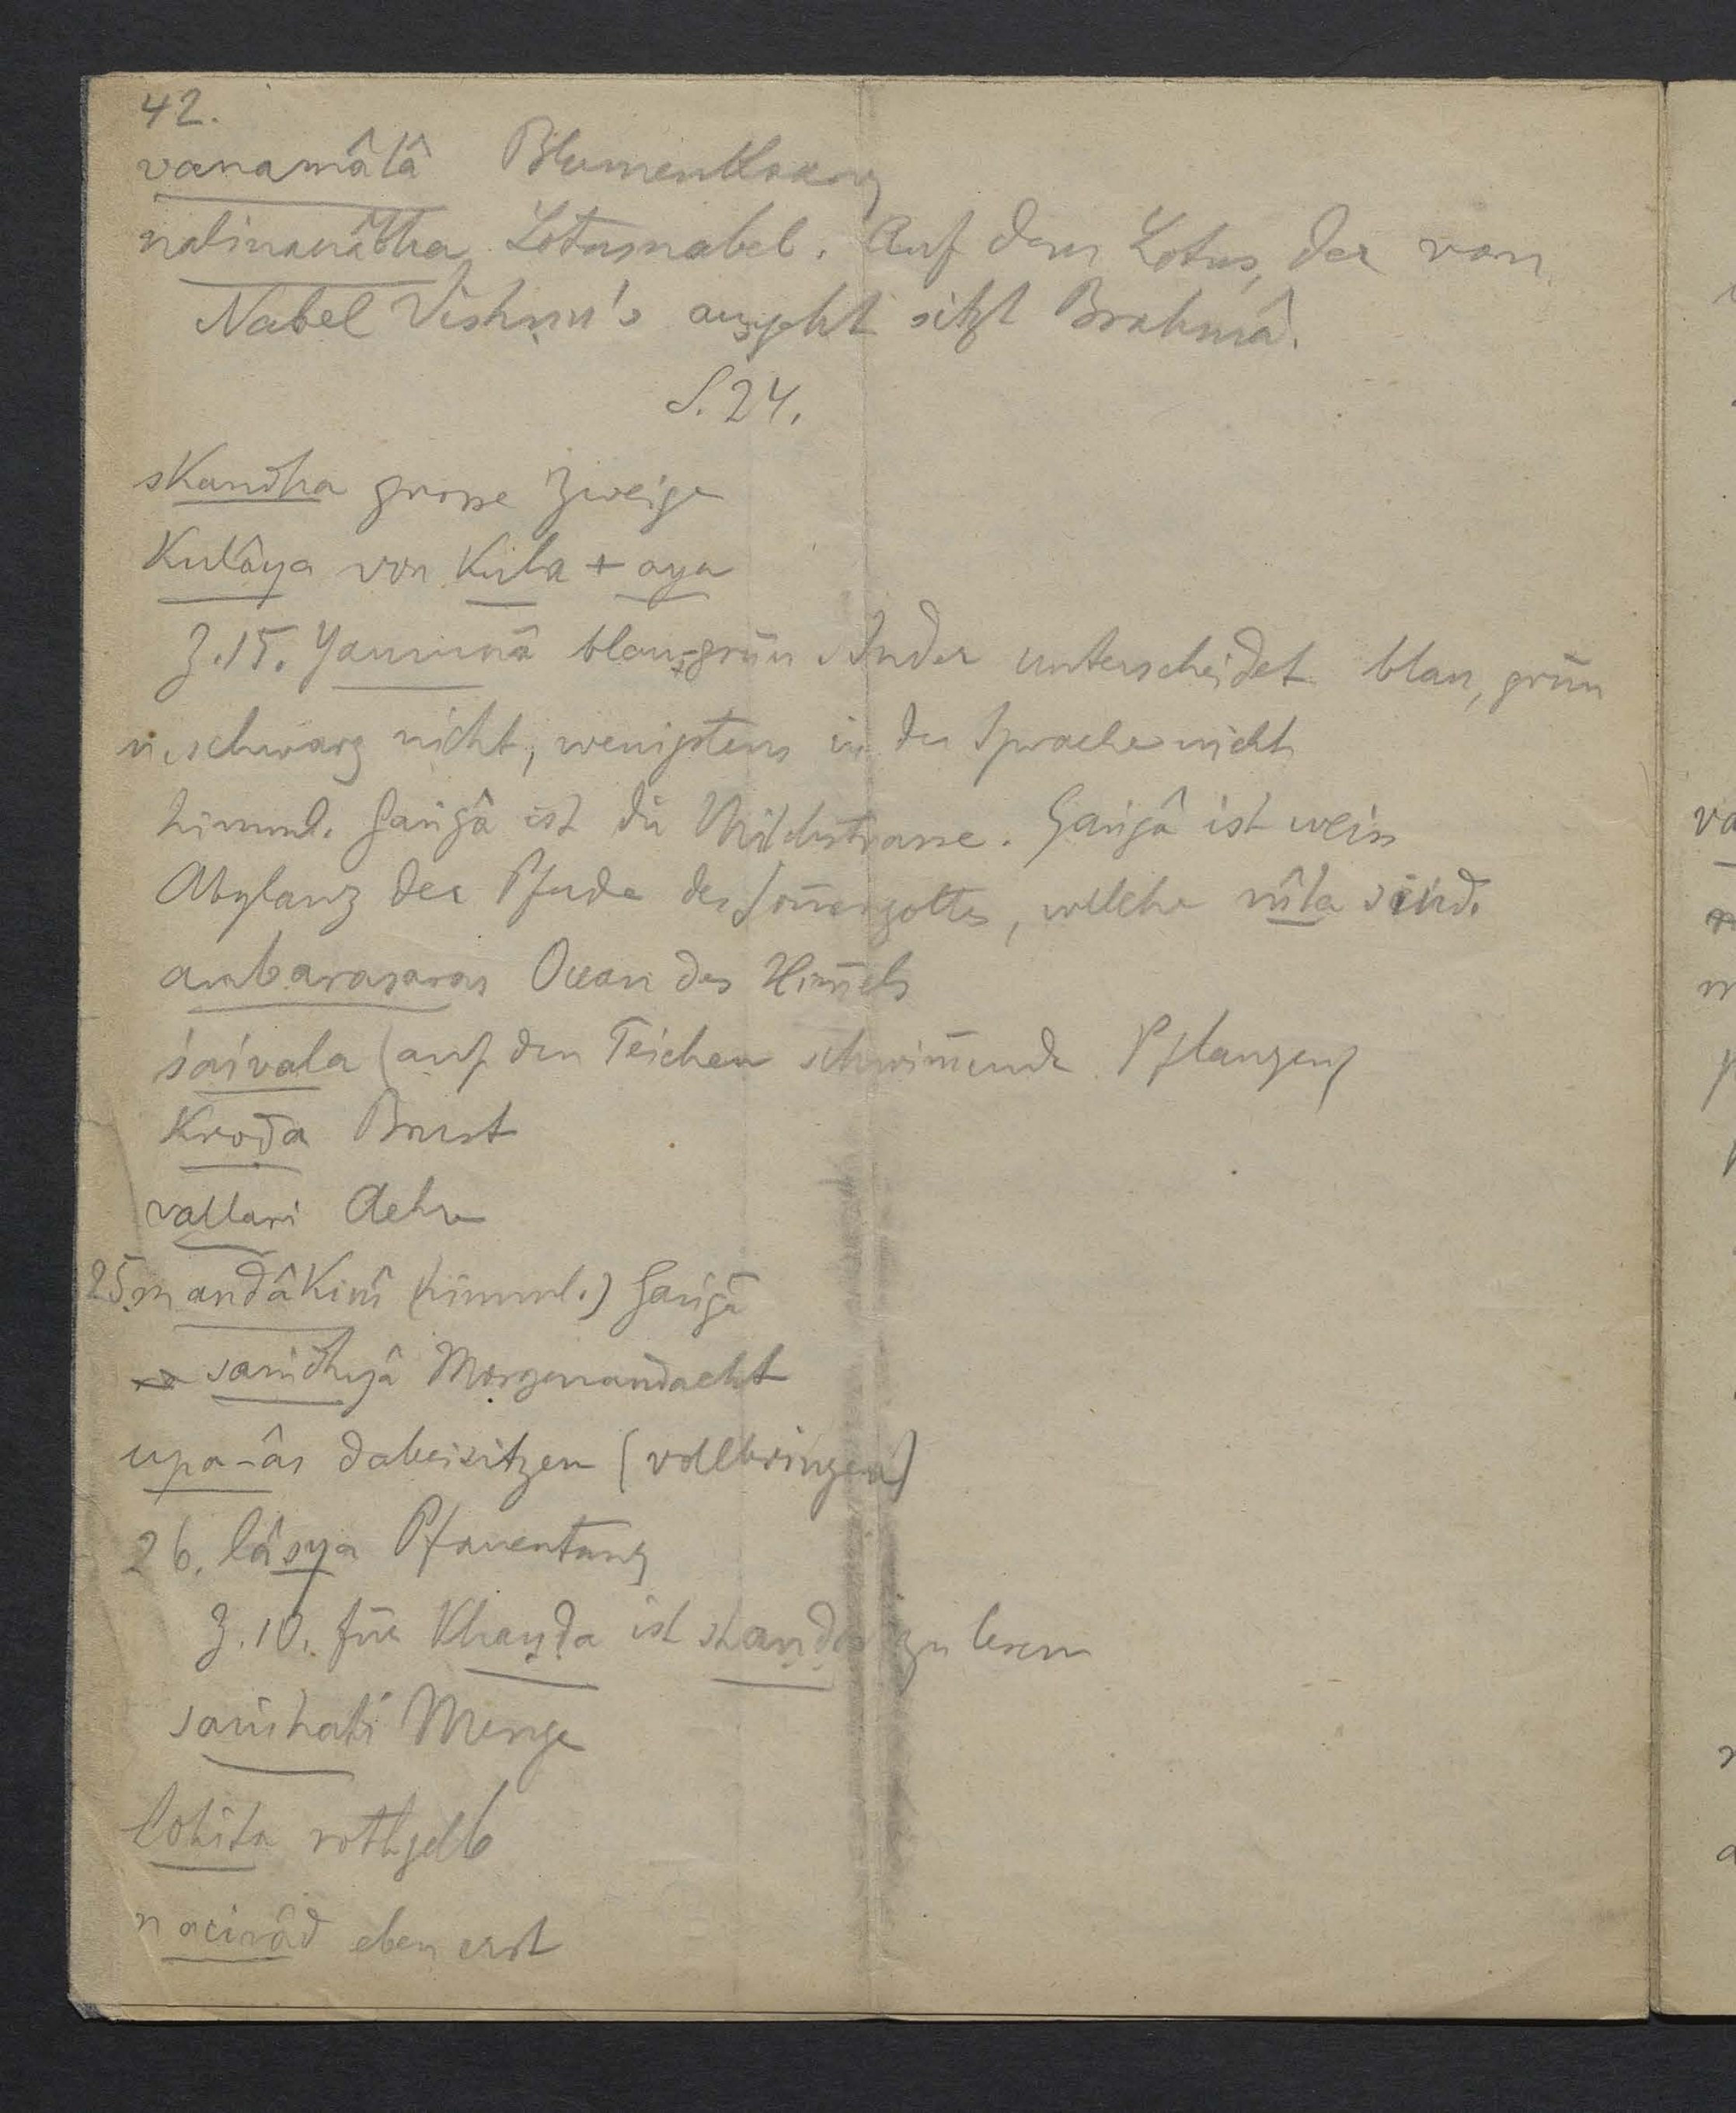 42.
vanamâlâ Blumenkranz
nalinanâbha Lotusnabel. Auf dem Lotus, der vom
Nabel Vishṇu's ausgeht sitzt Brahmâ.
S. 24.
skandha grosse Zweige
Kulâya von Kula + aya
Z. 15. Yamunâ blau-grün Inder unterscheidet blau, grün
u. schwarz nicht, wenigstens in der Sprache nicht
himml. Gaṅgâ ist die Milchstrasse. Gaṅgâ ist weiss
Abglanz der Pferde des Sonnengottes, welche nîla sind.
ambarasaras Ocean des Himmels
śaivala (auf den Teichen schwimmende Pflanzen)
Kroḍa Brust
vallari Aehre
25. mandâkinî (himml.) Gaṅgâ
saṁdhyâ Morgenandacht
upa-âs dabeisitzen (vollbringen)
26. lâsya Pfauentanz
Z. 10. für Khaṇḍa ist shaṇḍa zu lesen
saṁhati Menge
lohita rothgelb
nacirâd eben erst